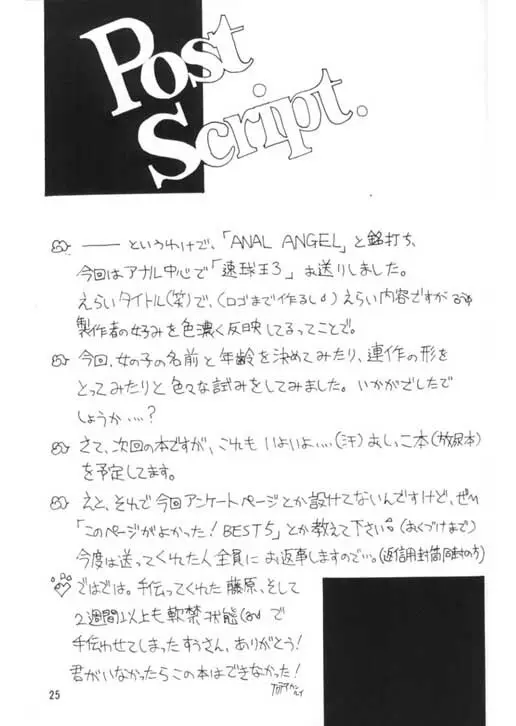 Post
Script.
——というわけで、「ANAL ANGEL」と銘打ち、
今回はアナル中心で「速球王3」お送りしました。
えらいタイトル(笑)で、(ロゴまで作るし)えらい内容ですが
製作者の好みを色濃く反映してるってことで。
今回、女の子の名前と年齢を決めてみたり、連作の形を
とってみたりと色々な試みをしてみました。いかがでしたで
しょうか‥‥?
さて、次回の本ですが、これも いよいよ‥‥(汗)おしっこ本(放尿本)
を予定してます。
えと、それで今回アンケートページとか設けてないんですけど、ぜひ
「このページがよかった!BEST5」とか教えて下さい。(おくづけまで)
今度は送ってくれた人全員に お返事しますので‥。(返信用封筒同封の方)
ではでは。手伝ってくれた 藤原、そして
2週間以上も軟禁状態 で
手伝わせてしまったすうさん、ありがとう!
君がいなかったらこの本はできなかった!
25